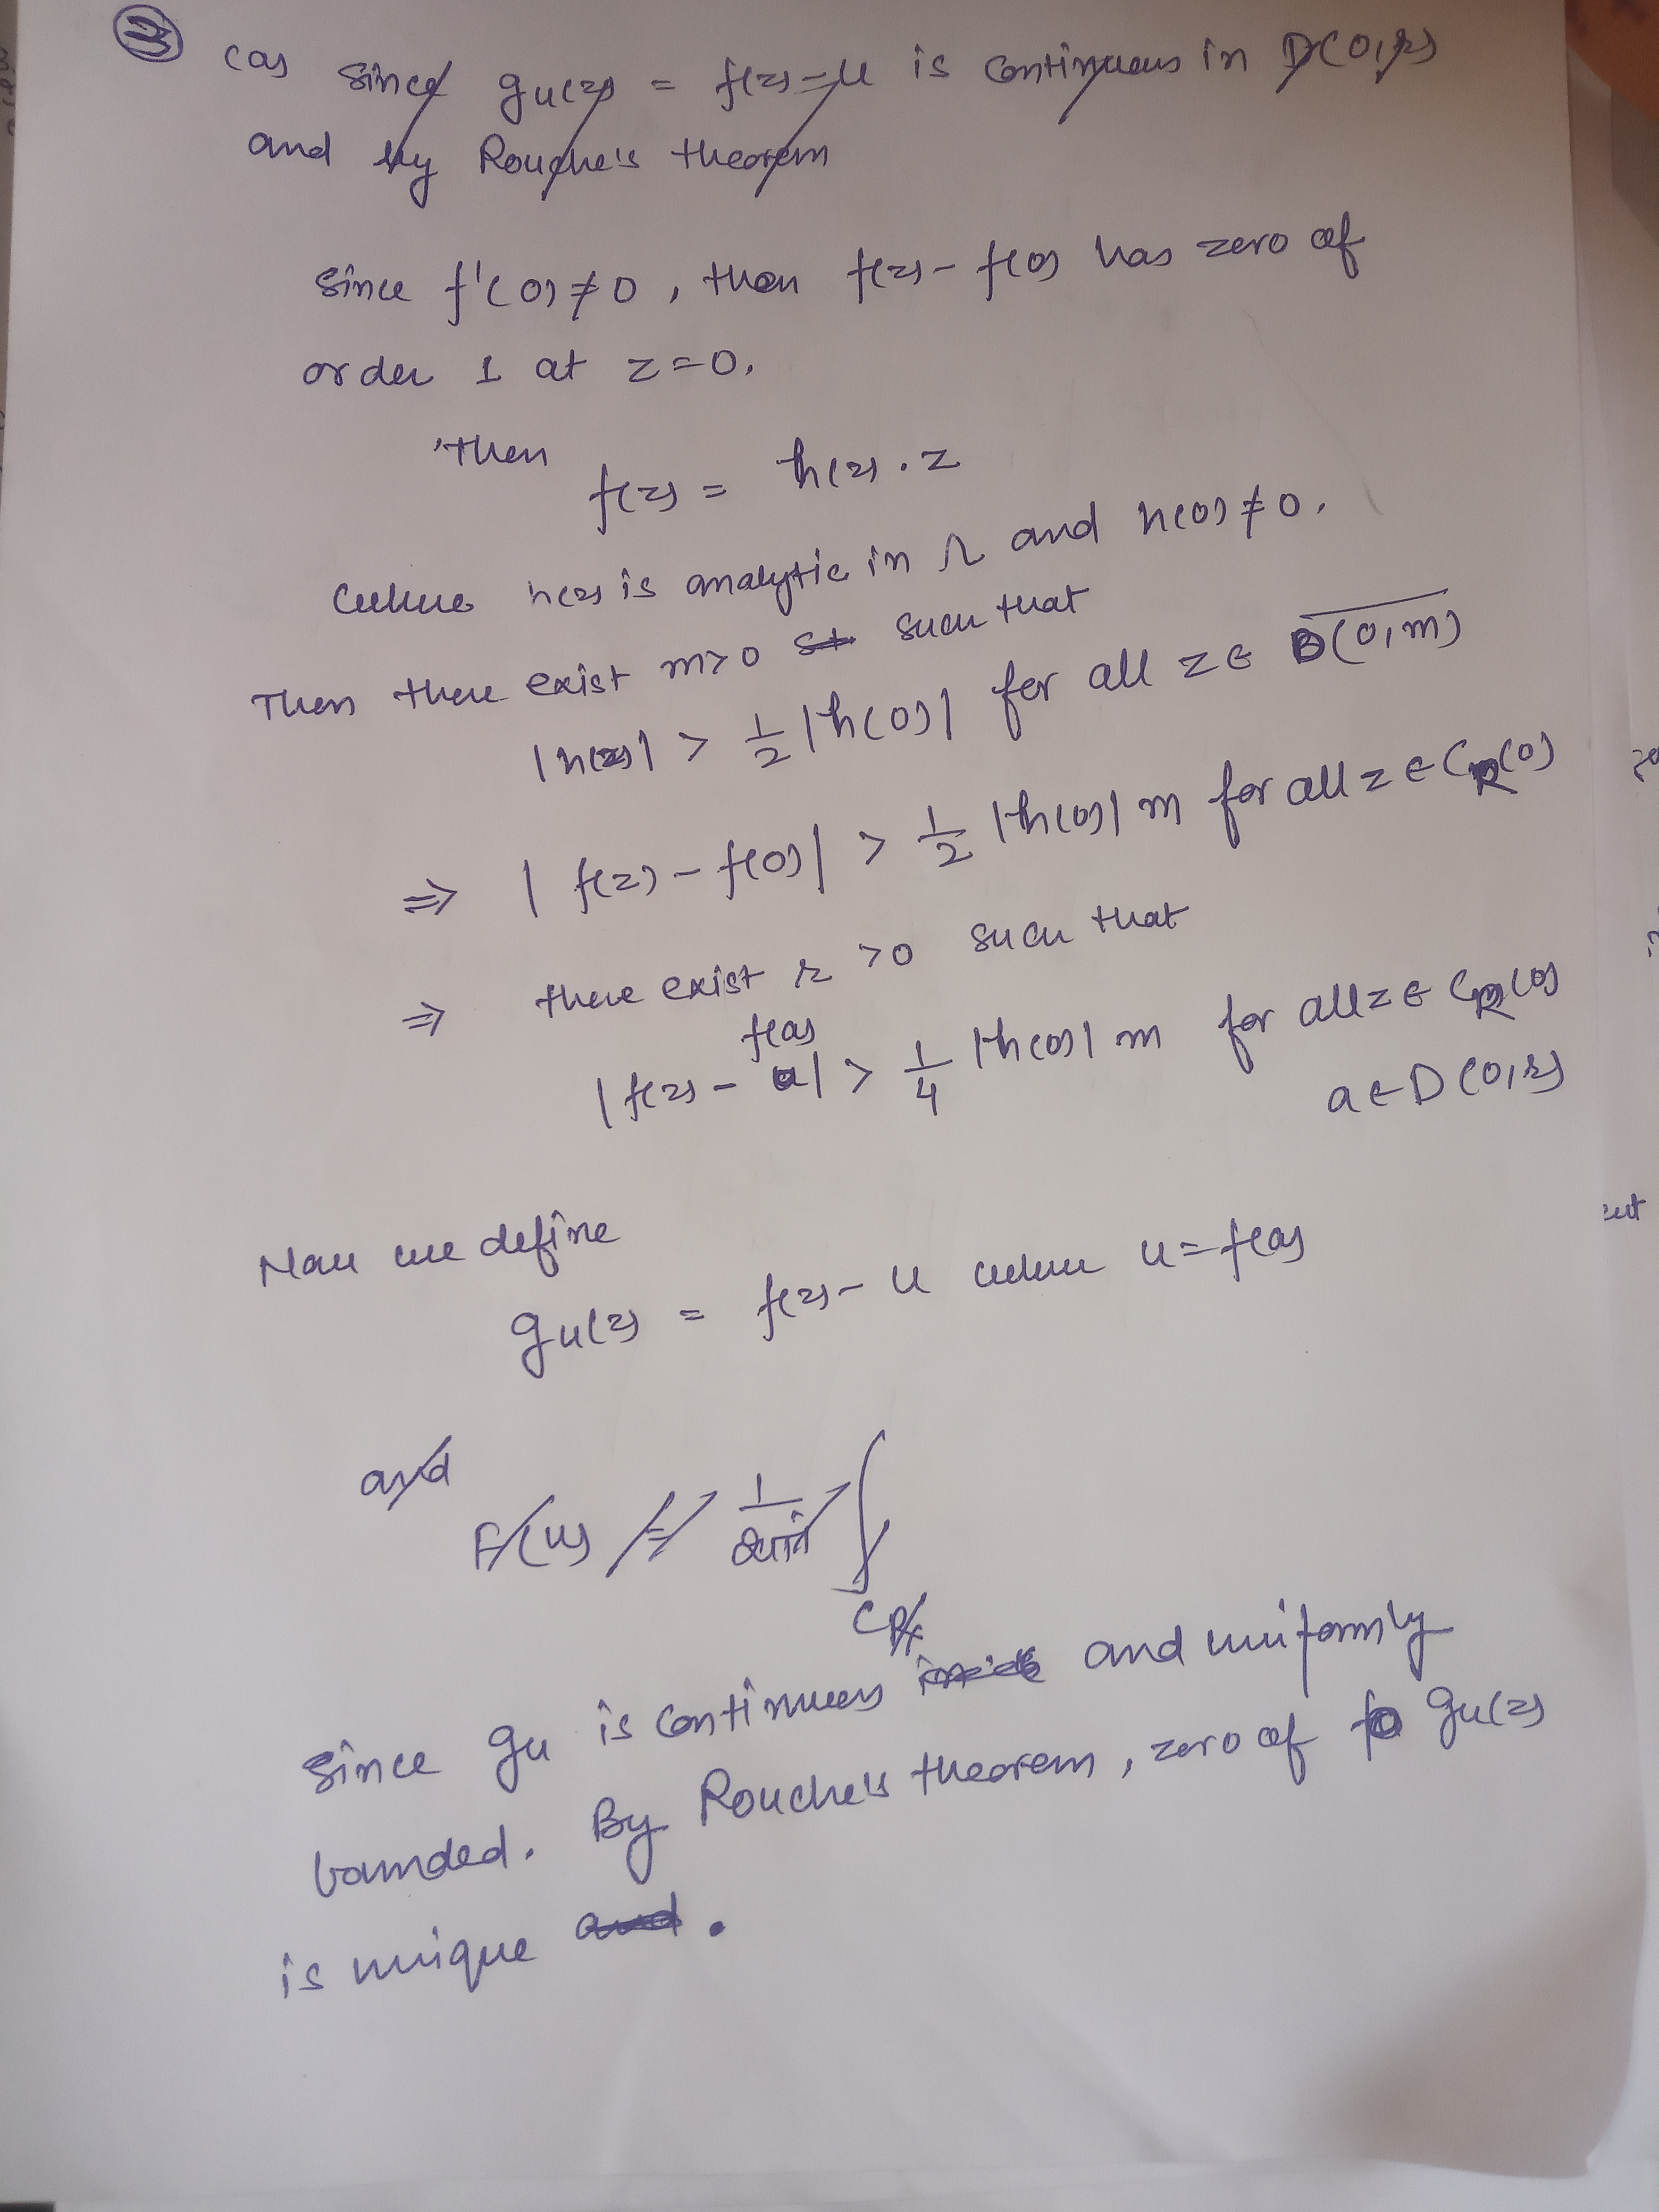 ③ (a) Since gu(z) = f(z)-u is continuous in D(0,r)
and by Rouche's theorem
Since f'(0) ≠ 0, then f(z) - f(0) has zero of
order 1 at z=0.
Then
f(z) = h(z) . z
where h(z) is analytic in Ω and h(0) ≠ 0.
Then there exist m>0 such that
|h(z)| > 1/2 |h(0)| for all z ∈ D(0,m)
⇒ | f(z) - f(0) | > 1/2 |h(0)| m for all z ∈ CR(0)
⇒ there exist r > 0 such that
f(a)
|f(z) - | > 1/4 |h(0)| m for all z ∈ CR(0)
a ∈ D(0,r)
Now we define
gu(z) = f(z) - u where u = f(a)
and
F(u) = 1/2πi ∫
CR
Since gu is continuous and uniformly
bounded. By Rouche's theorem, zero of gu(z)
is unique .